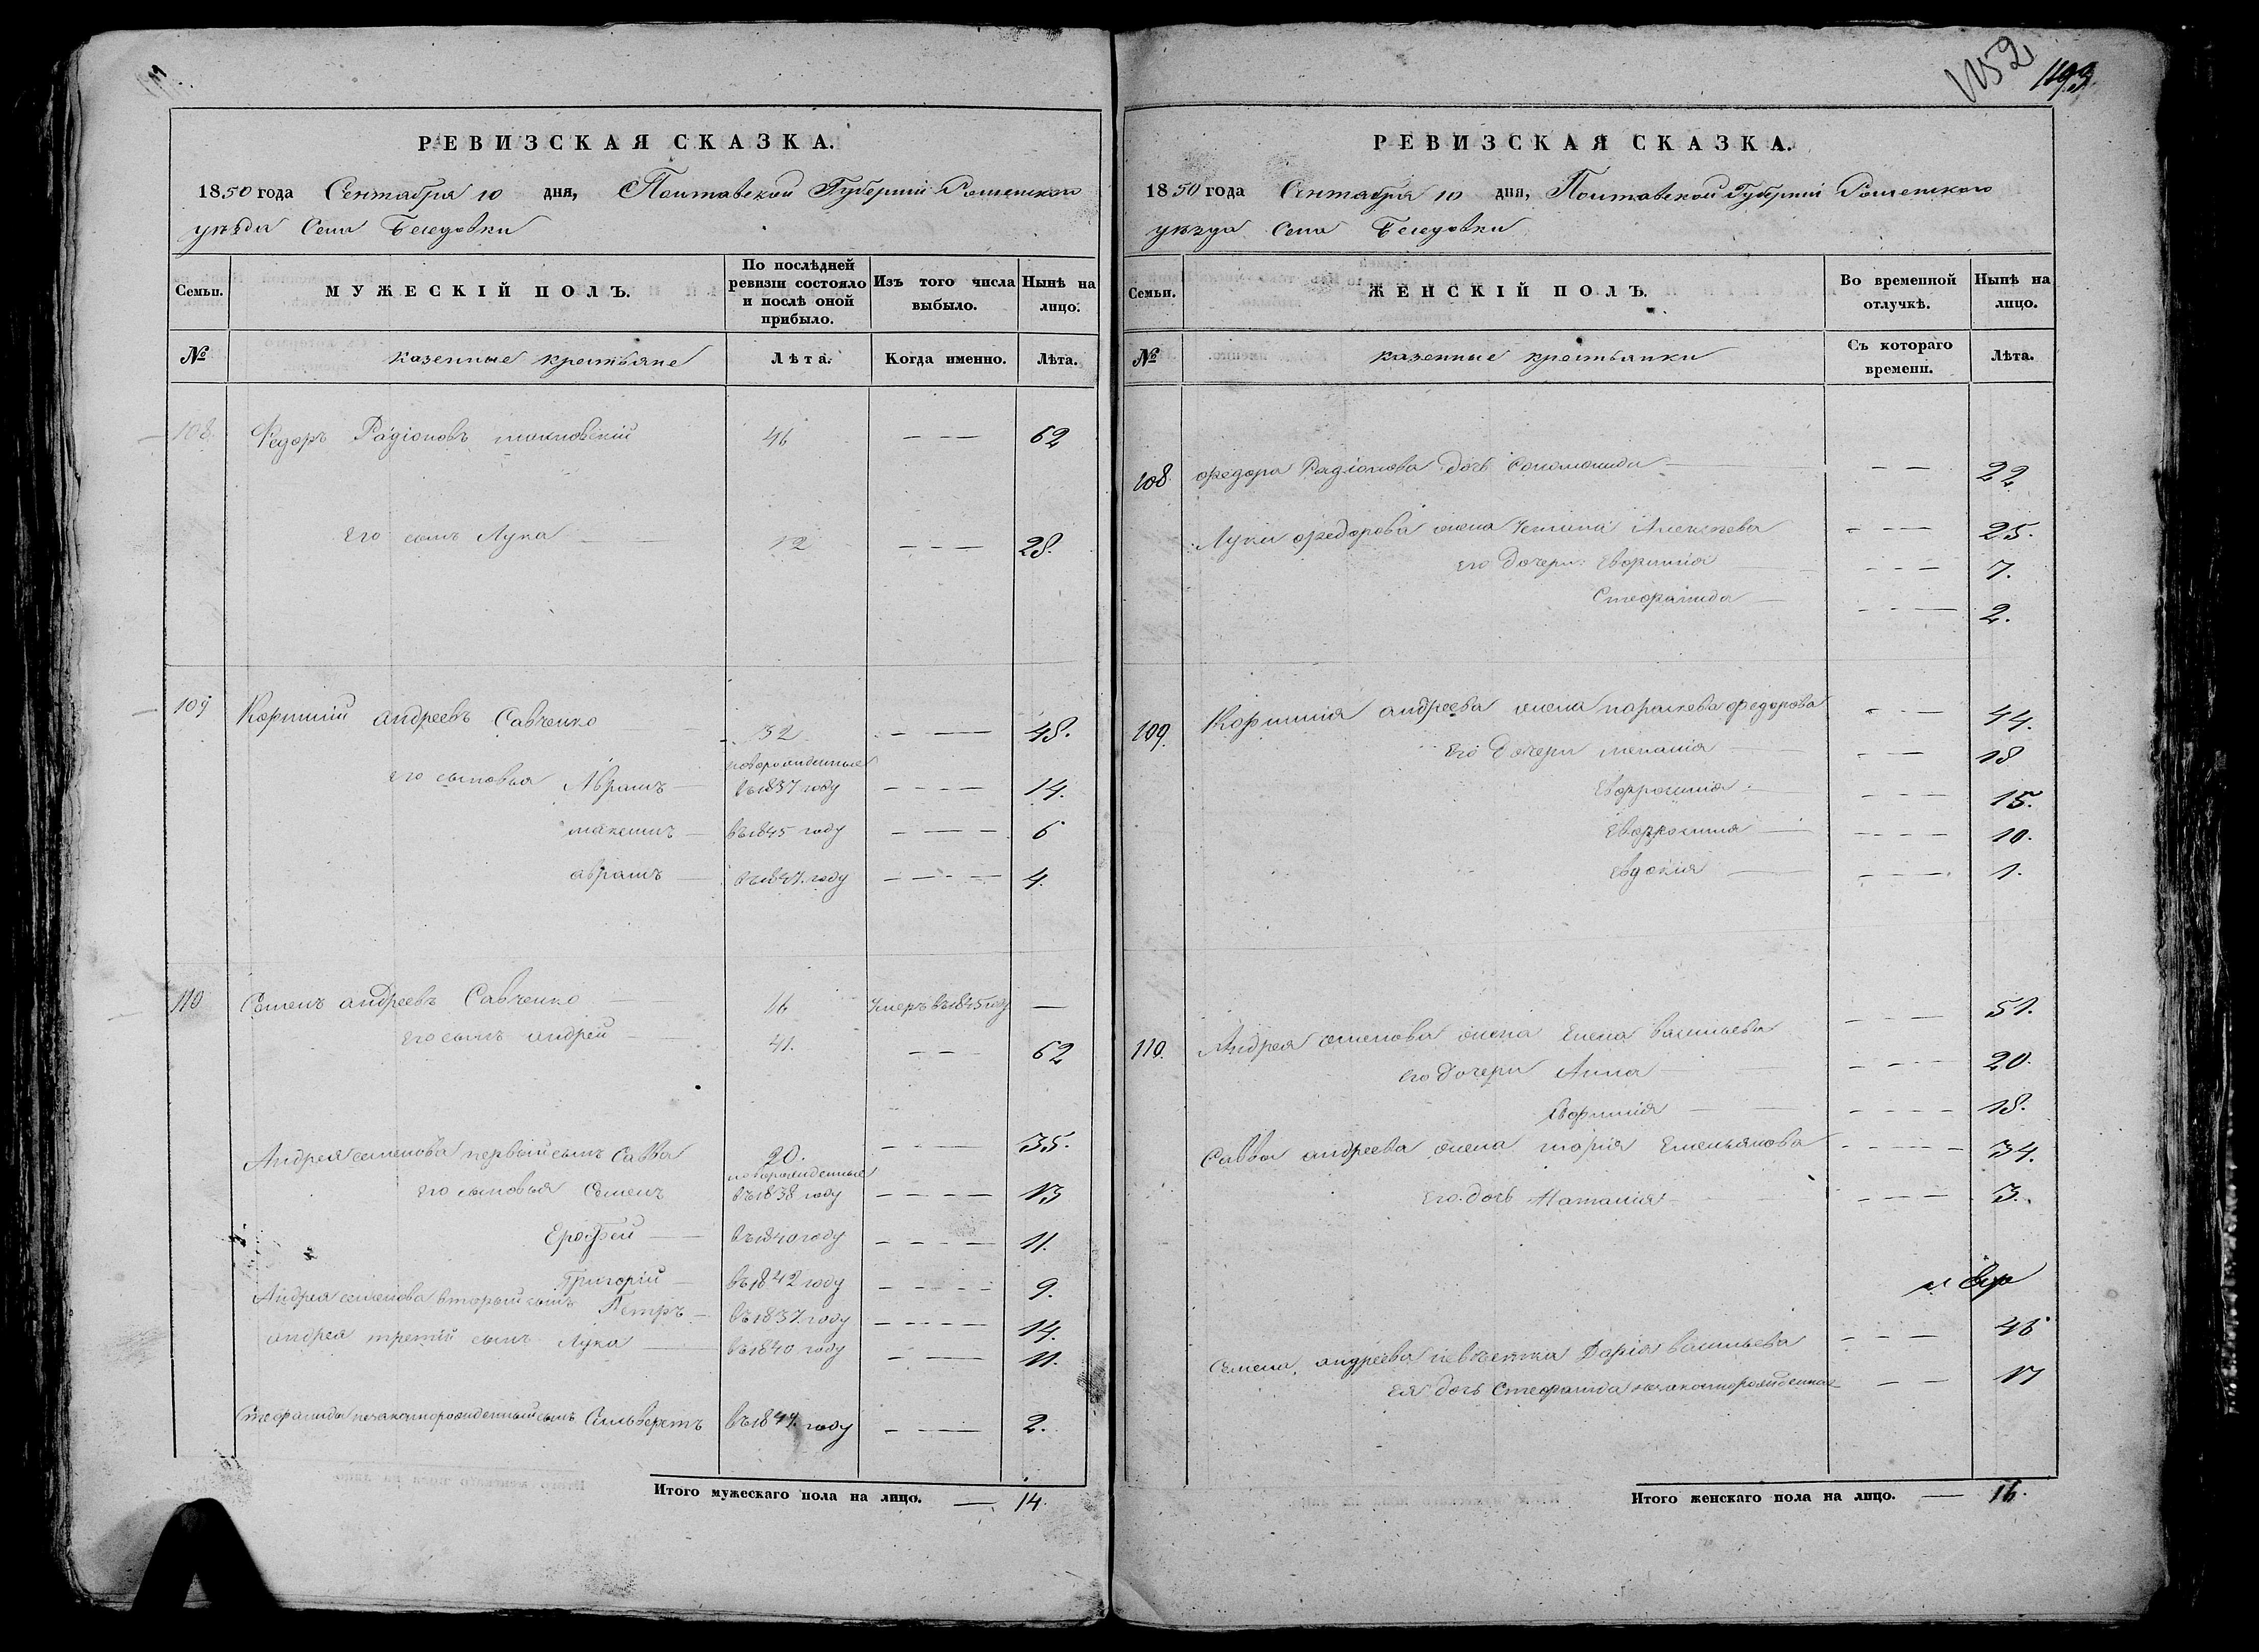 РЕВИЗСКАЯ СКАЗКА.
1850 года Сентября 10 дня, Полтавской Губернiи Роменскаго
уѣзда Села Беседовки
Семьи.
МУЖЕСКІЙ ПОЛЪ.
По послѣдней ревизіи состояло и послѣ оной прибыло.
Изъ того числа выбыло.
Нынѣ на лицо.
№
казенные крестьяне
Лѣта.
Когда именно.
Лѣта.
108. Федоръ Радiоновъ 46 — — 62
Его сынъ Лука 12 — — — 28.
109 Андреевъ Савченко 32 — — — 48.
новорожденные
его сыновья Абрамъ въ 1837 году — — — — 14.
Максимъ въ 1845 году — — — 6
абрамъ въ 1847. году — — — — 4.
110 Семенъ андреевъ Савченко — Умеръ въ 1845 году —
его сынъ андрей 41. — — — 62
Андрея семенова первый сынъ Савва 20. — — — 35.
новорожденные
его сыновья Семенъ въ 1838 году — — — — 13
Ерофей въ 1840 году — — — — 11.
Григорiй въ 1842 году — — — — 9.
Андрея семенова вторый сынъ Петръ въ 1837. году — — — — 14.
андрея третiй сынъ Лука въ 1840 году — — 11.
Стефаниды незаконнорожденный сынъ Сильверстъ году — — 2.
Итого мужескаго пола на лицо. — 14.
1152
1193
РЕВИЗСКАЯ СКАЗКА.
1850 года Сентября 10 дня, Полтавской Губернiи Роменскаго
уѣзда Села Беседовки
Семьи.
ЖЕНСКІЙ ПОЛЪ.
Во временной отлучкѣ.
Нынѣ на лицо.
№
казенные крестьянки
Съ котораго времени.
Лѣта.
108. Федора Радiонова дочь Соломонида — — 22
Луки Федорова жена Алексѣева — — — 25.
его дочери: Евфимiя — — — 7.
Стефанида — — — 2.
109. андреева жена параскева Федорова — — — 44.
Его дочери меланiя — — 18
Евфросинiя — — — 15.
Евфросинiя — — — 10.
Евдокiя — — — 1.
110. Андрея семенова жена Елена васильева — — — 51.
его дочери Анна — — — 20.
Евфимiя — — — — 18.
Саввы андреева жена марiя Емельянова — — — — 34.
Его дочь Наталiя — — — 3.
Семена андреева невѣстка Дарiя васильева — — — 46
Ея дочь Стефанида незаконнорожденная — — 17
Итого женскаго пола на лицо. — 16.